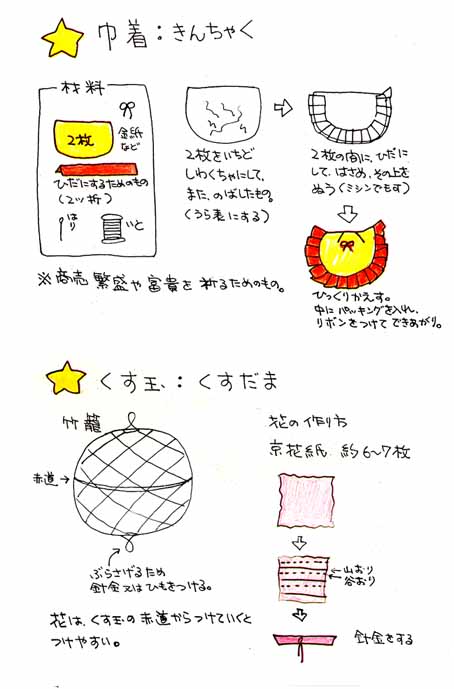 巾着：きんちゃく
材料
2枚
金紙
など
ひだにするためのもの
(2ッ折)
はり
いと
2枚をいちど
しわくちゃにして、
また、のばしたもの。
(うら表にする)
2枚の間に、ひだに
して、はさめ、その上を
ぬう(ミシンでもす)
ひっくりかえす。
中にパッキングを入れ、
リボンをつけてできあがり。
※商売繁盛や富貴を祈るためのもの。
くす玉：くすだま
竹籠
赤道
ぶらさげるため
針金又はひもをつける。
花は、くす玉の赤道からつけていくと
つけやすい。
花の作り方
京花紙 約6〜7枚
山おり
谷おり
針金をする